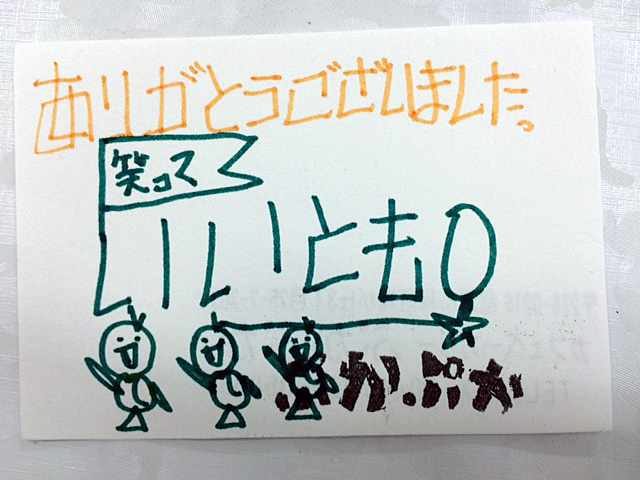 ありがとうございました。
笑って
いいとも!
ぷかぷか